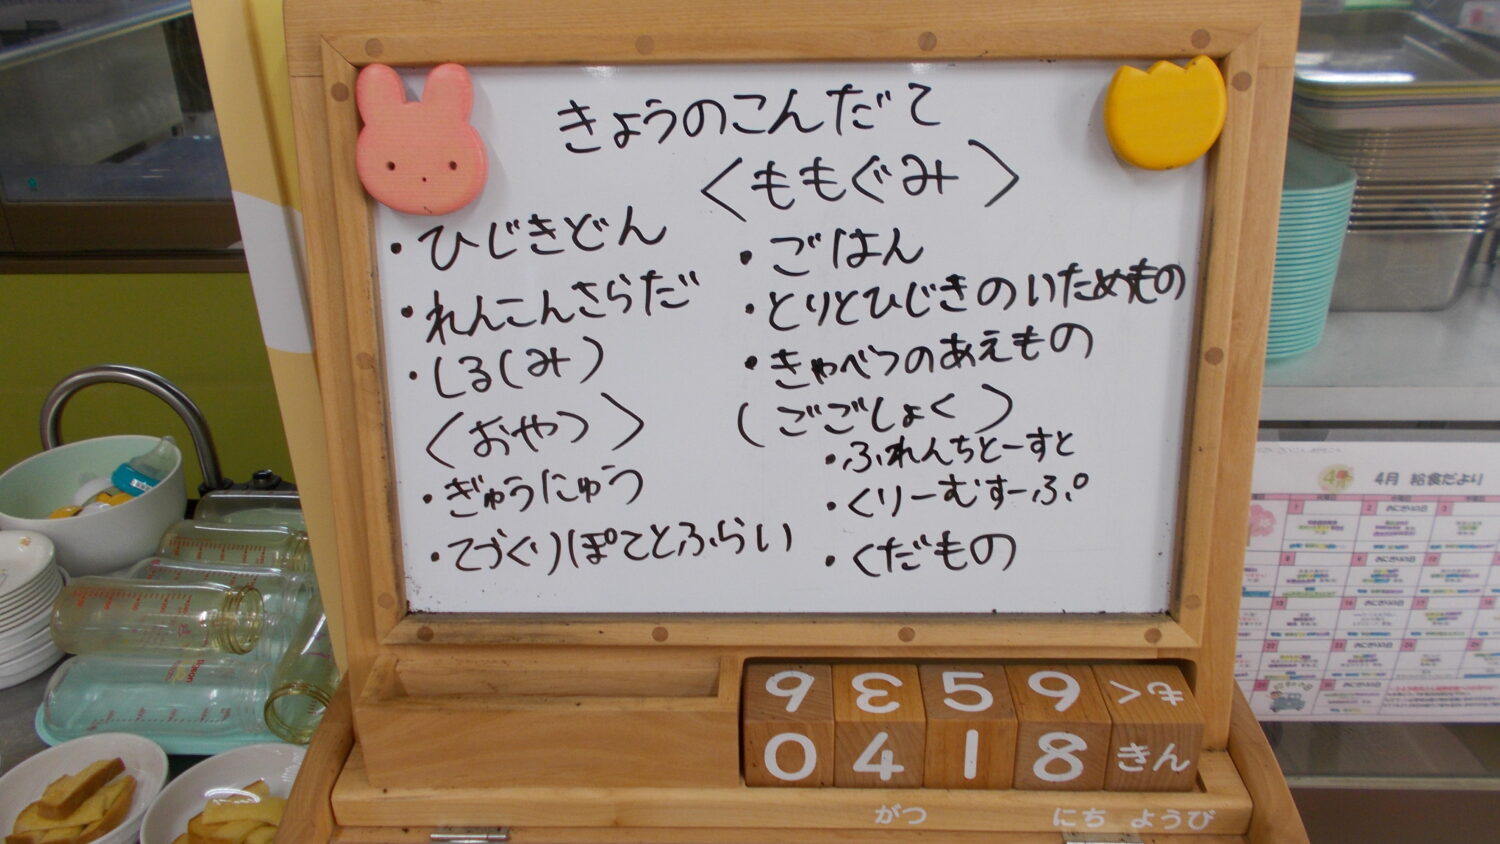 きょうのこんだて
・ひじきどん
・れんこんさらだ
・しる(み)
〈おやつ〉
・ぎゅうにゅう
・てづくりぽてとふらい
〈ももぐみ〉
・ごはん
・とりとひじきのいためもの
・きゃべつのあえもの
(ごごしょく)
・ふれんちとーすと
・くりーむすーぷ
・くだもの
9 3 5 6 もく
0 4 1 8 きん
がつ にち ようび
4月 給食だより